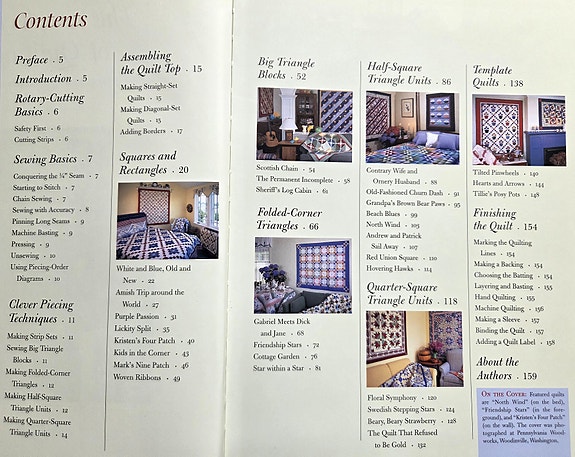 Contents
Preface . 5
Introduction . 5
Rotary-Cutting
Basics . 6
Safety First • 6
Cutting Strips • 6
Sewing Basics . 7
Conquering the ¼" Seam • 7
Starting to Stitch • 7
Chain Sewing • 7
Sewing with Accuracy • 8
Pinning Long Seams • 9
Machine Basting • 9
Pressing • 9
Unsewing • 10
Using Piecing-Order
Diagrams • 10
Clever Piecing
Techniques . 11
Making Strip Sets • 11
Sewing Big Triangle
Blocks • 11
Making Folded-Corner
Triangles • 12
Making Half-Square
Triangle Units • 12
Making Quarter-Square
Triangle Units • 14
Assembling
the Quilt Top . 15
Making Straight-Set
Quilts • 15
Making Diagonal-Set
Quilts • 15
Adding Borders • 17
Squares and
Rectangles . 20
White and Blue, Old and
New • 22
Amish Trip around the
World • 27
Purple Passion • 31
Lickity Split • 35
Kristen's Four Patch • 40
Kids in the Corner • 43
Mark's Nine Patch • 46
Woven Ribbons • 49
Big Triangle
Blocks . 52
Scottish Chain • 54
The Permanent Incomplete • 58
Sheriff's Log Cabin • 61
Folded-Corner
Triangles . 66
Gabriel Meets Dick
and Jane • 68
Friendship Stars • 72
Cottage Garden • 76
Star within a Star • 81
Half-Square
Triangle Units . 86
Contrary Wife and
Ornery Husband • 88
Old-Fashioned Churn Dash • 91
Grandpa's Brown Bear Paws • 95
Beach Blues • 99
North Wind • 103
Andrew and Patrick
Sail Away • 107
Red Union Square • 110
Hovering Hawks • 114
Quarter-Square
Triangle Units . 118
Floral Symphony • 120
Swedish Stepping Stars • 124
Beary, Beary Strawberry • 128
The Quilt That Refused
to Be Gold • 132
Template
Quilts . 138
Tilted Pinwheels • 140
Hearts and Arrows • 144
Tillie's Posy Pots • 148
Finishing
the Quilt . 154
Marking the Quilting
Lines • 154
Making a Backing • 154
Choosing the Batting • 154
Layering and Basting • 155
Hand Quilting • 155
Machine Quilting • 156
Making a Sleeve • 157
Binding the Quilt • 157
Adding a Quilt Label • 158
About the
Authors . 159
On the Cover: Featured quilts
are "North Wind" (on the bed),
"Friendship Stars" (in the fore-
ground), and "Kristen's Four Patch"
(on the wall). The cover was pho-
tographed at Pennsylvania Wood-
works, Woodinville, Washington.